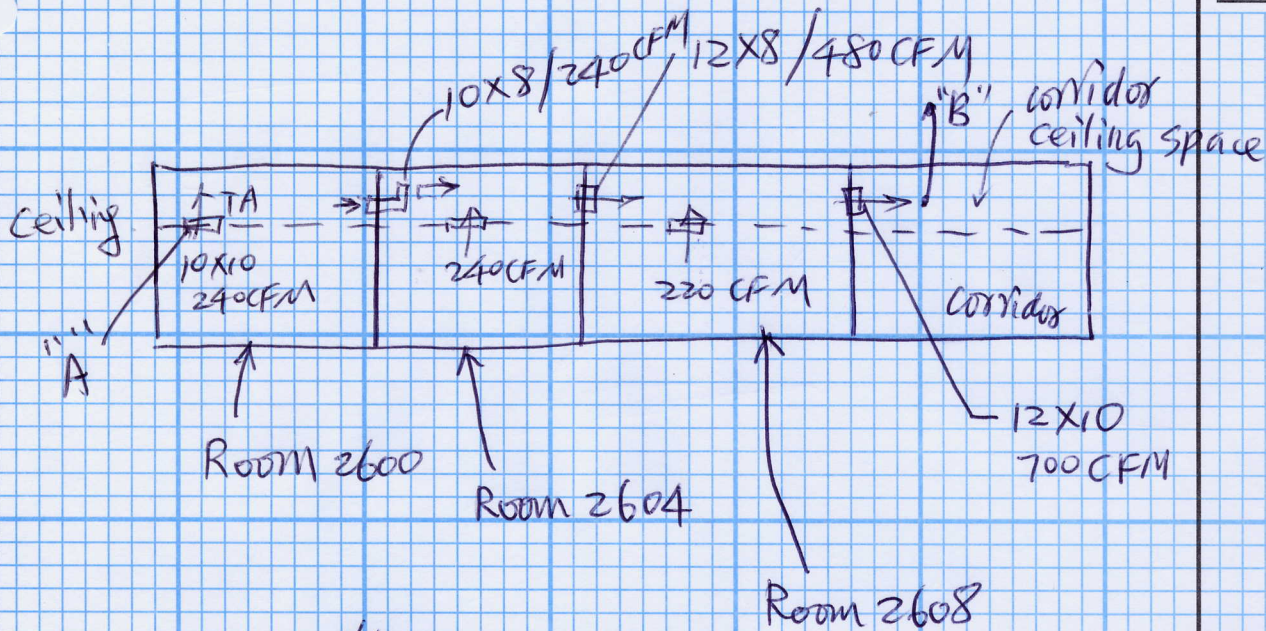 10X8/240 CFM
12X8/480 CFM
"B"
corridor
ceiling space
Ceiliig
TA
10X10
240CFM
240CFM
220 CFM
corridor
"A"
12X10
700 CFM
Room 2600
Room 2604
Room 2608